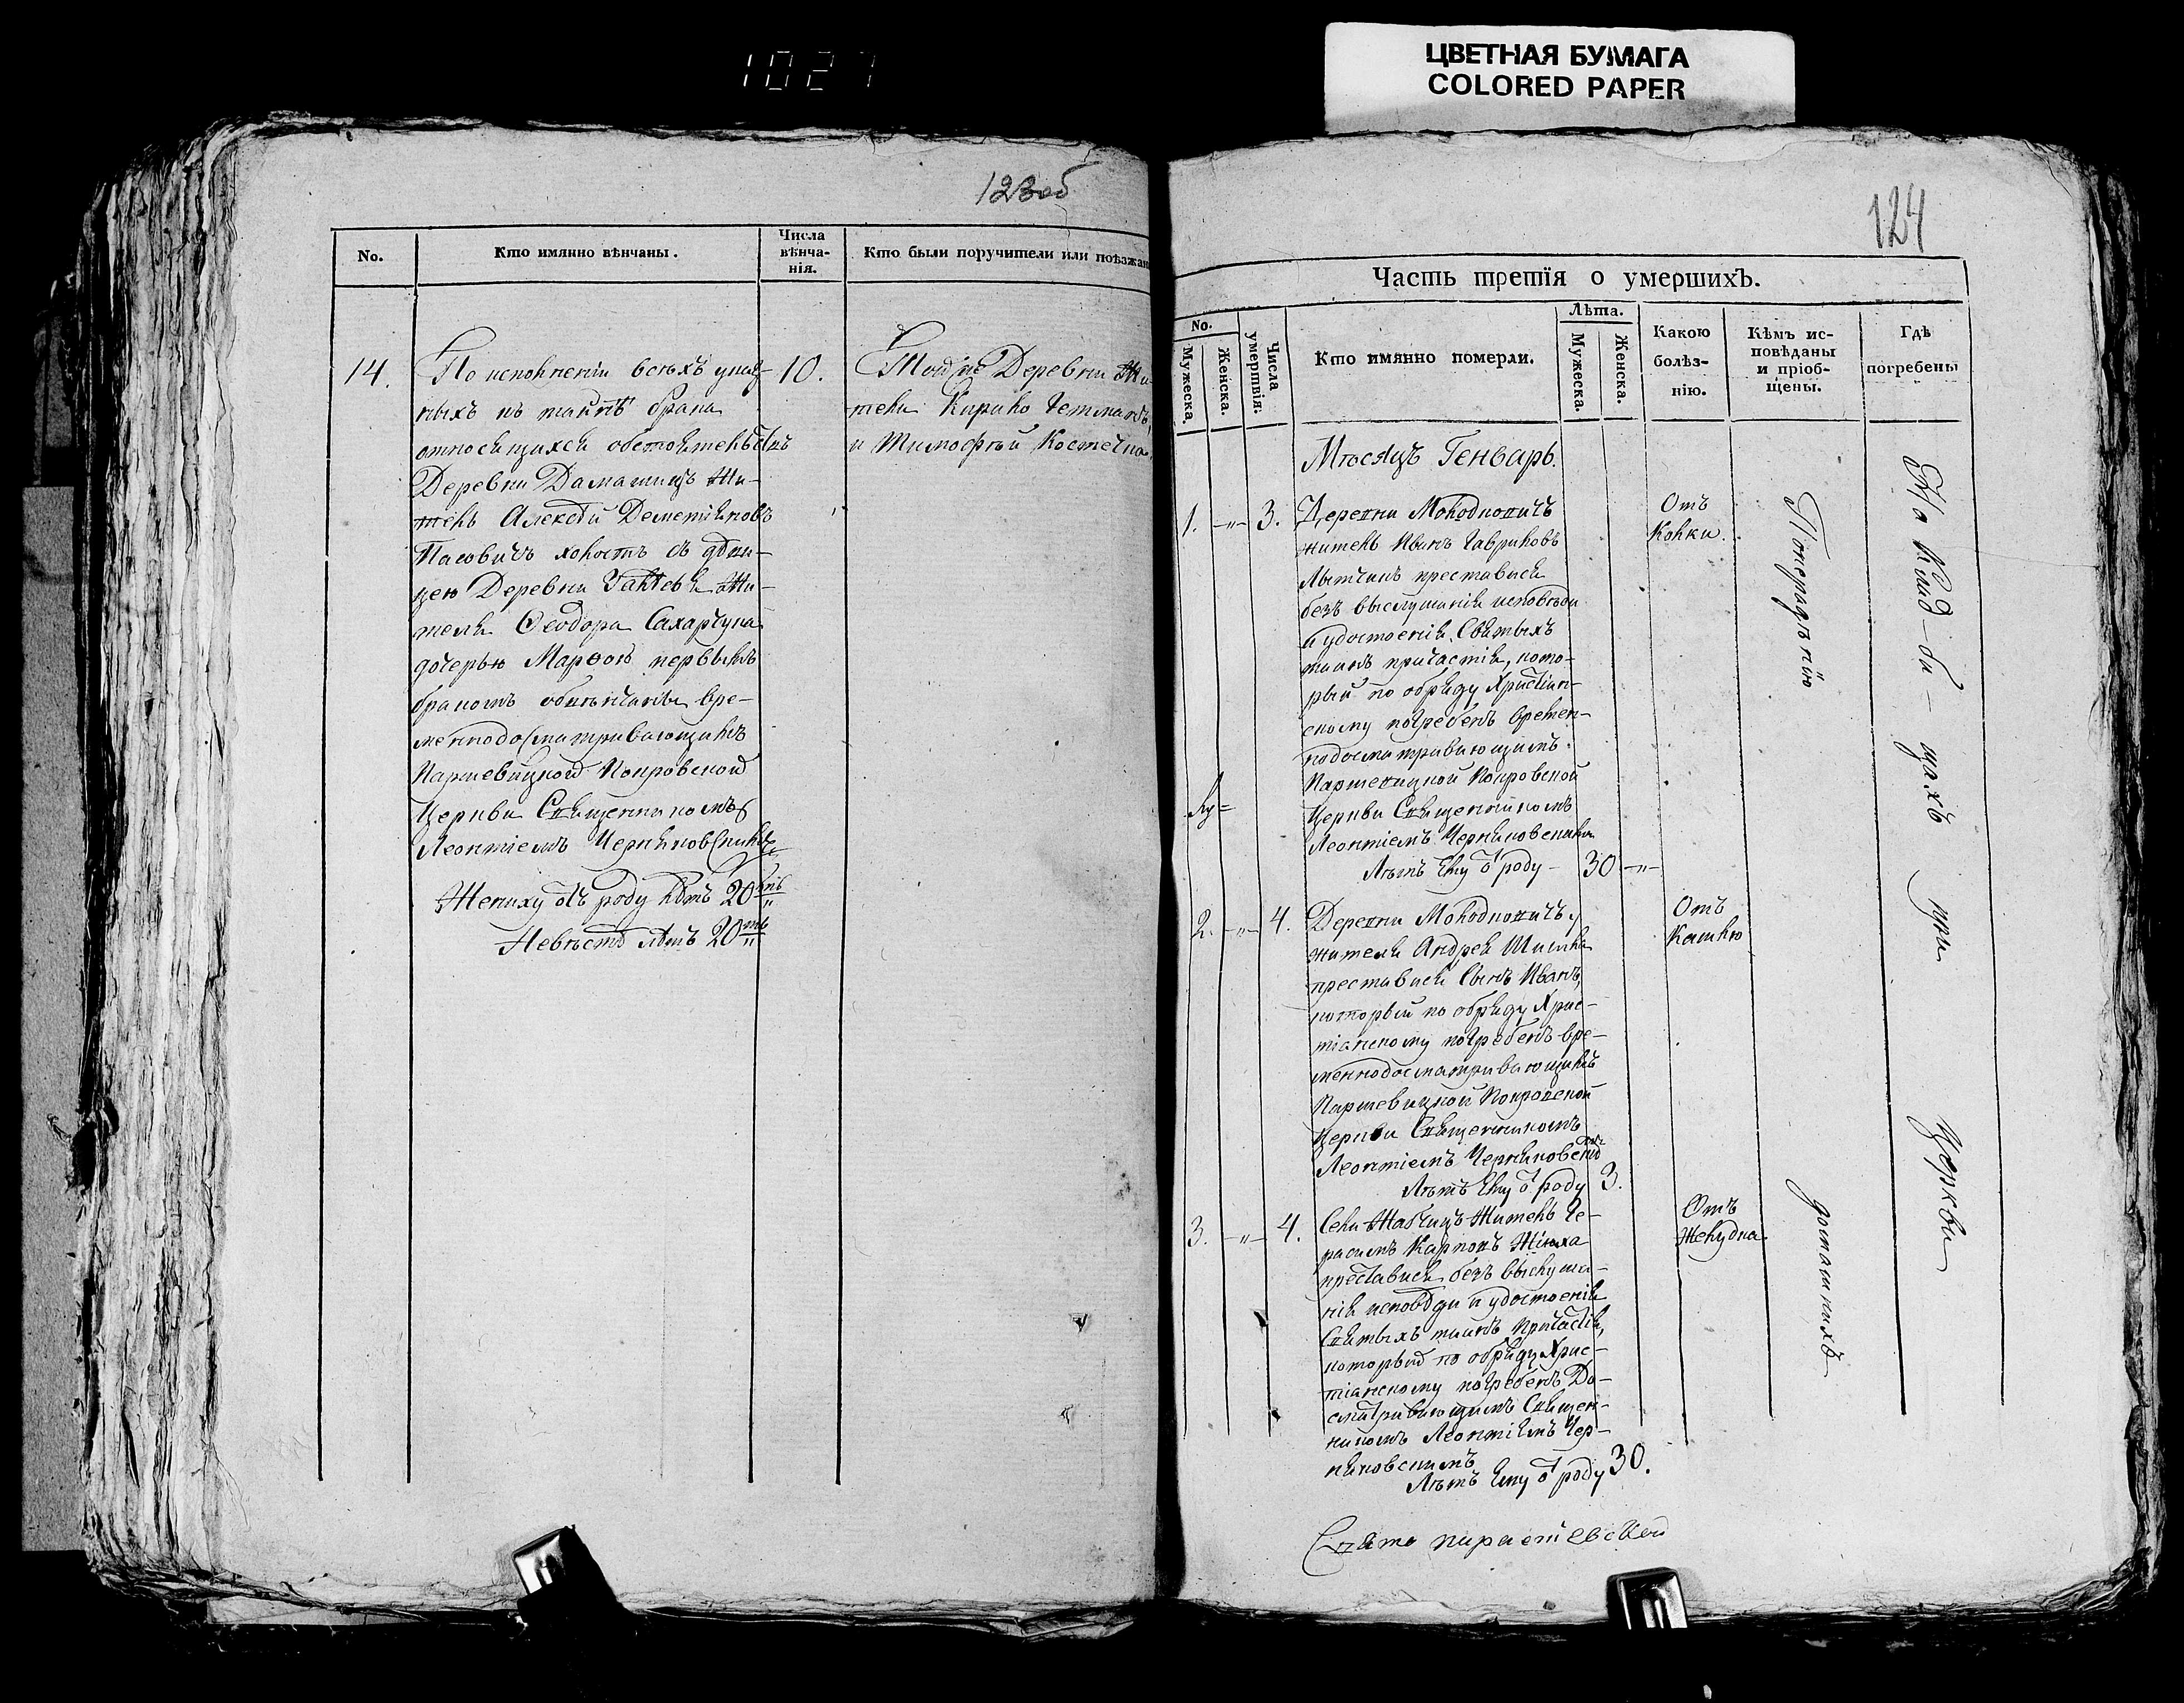 1027
ЦВЕТНАЯ БУМАГА
COLORED PAPER
123об
No.
Кто имянно вѣнчаны.
Числа вѣнча-нія.
Кто были поручители или поѣзжан
14.
По исполненіи всѣхъ
ныхъ къ тайнѣ брака
относящихся обстоятельствъ
Деревни Дамашицъ Жи-
тель Алексѣй Деметіяновъ
Пасовичъ холостъ съ дѣви-
цею Деревни Жи-
теля Ѳеодора Сахарчука
дочерью Марѳою первымъ
бракомъ обвѣнчаны вре-
меннодосматривающимъ
Паршевицкой Покровской
Церкви Священникомъ
Леонтіемъ Черняковскимъ
Жениху отъ роду лѣтъ 20ть
Невѣстѣ лѣтъ 20ть
10.
Тойже Деревни Жи-
тели Кирило Гетманъ
и Тимофѣй Костечко
124
Часть третія о умершихъ.
No.
Мужеска.
Женска.
Числа умертвія.
Кто имянно померли.
Лѣта.
Мужеска.
Женска.
Какою болѣз-нію.
Кѣмъ ис-повѣданы и пріоб-щены.
Гдѣ погребены
Мѣсяцъ Генварь.
1. -"- 3.
Деревни Молодковичъ
житель Иванъ Гавриловъ
Лытчикъ преставися
безъ выслушанія исповѣди
и удостоенія Святыхъ
таинъ причастія, кото-
рый по обряду Христіан-
скому погребенъ времен-
нодосматривающимъ
Паршевицкой Покровской
Церкви Священникомъ
Леонтіемъ Черняковскимъ
Лѣтъ Ему отъ роду - 30 -"-
Отъ
Колки.
2. -"- 4.
Деревни Молодковичъ
жителя Андрея Шишки
преставися Сынъ Иванъ,
который по обряду Хрис-
тіанскому погребенъ вре-
меннодосматривающимъ
Паршевицкой Покровской
Церкви Священникомъ
Леонтіемъ Черняковскимъ
Лѣтъ Ему отъ роду 3.
Отъ
Кашлю
3. -"- 4.
Села Жабчицъ Житель Ге-
расимъ Карповъ
преставися безъ выслуша-
нія исповѣди и удостоенія
Святыхъ таинъ причастія,
который по обряду Хрис-
тіанскому погребенъ До-
сматривающимъ Священ-
никомъ Леонтіемъ Чер-
няковскимъ
Лѣтъ Ему отъ роду 30.
Отъ
Желудка
домашнихъ
На Клад-би-щахъ при Церкви